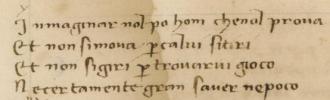 Inmaginar nol po hom chenol prova
Et non simova p calui sitiri
Et non sigiri p trovarui gioco
Ne certamente gran saver ne poco